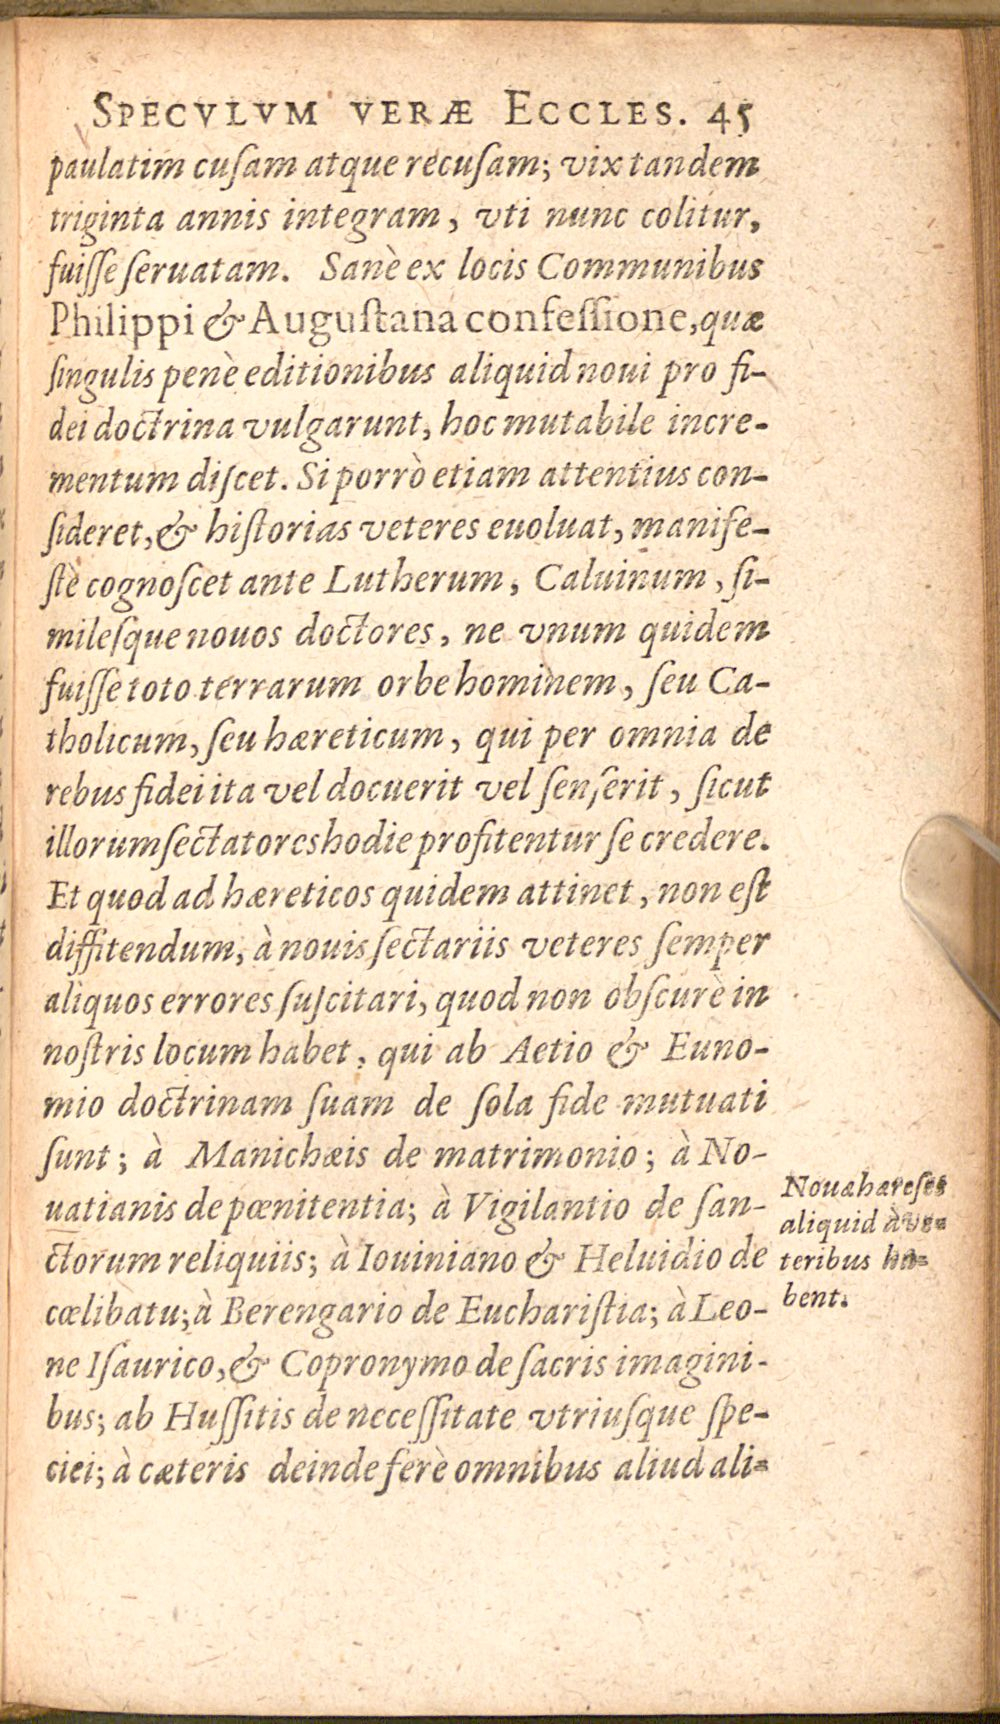 SPECVLVM VERÆ ECCLES. 45
paulatim cuſam atque recuſam; vix tandem
triginta annis integram, vti nunc colitur,
fuiſſe ſeruatam. Sanè ex locis Communibus
Philippi & Auguſtana confeſſione, quæ
ſingulis penè editionibus aliquid noui pro fi-
dei doctrina vulgarunt, hoc mutabile incre-
mentum diſcet. Si porrò etiam attentius con-
ſideret, & hiſtorias veteres euoluat, manife-
ſtè cognoſcet ante Lutherum, Caluinum, ſi-
mileſque nouos doctores, ne vnum quidem
fuiſſe toto terrarum orbe hominem, ſeu Ca-
tholicum, ſeu hæreticum, qui per omnia de
rebus fidei ita vel docuerit vel ſenſerit, ſicut
illorum ſectatores hodie profitentur ſe credere.
Et quod ad hæreticos quidem attinet, non eſt
diffitendum, à nouis ſectariis veteres ſemper
aliquos errores ſuſcitari, quod non obſcurè in
noſtris locum habet, qui ab Aetio & Euno-
mio doctrinam ſuam de ſola fide mutuati
ſunt; à Manichæis de matrimonio; à No-
uatianis de pœnitentia; à Vigilantio de ſan-
ctorum reliquiis; à Iouiniano & Heluidio de
cœlibatu; à Berengario de Euchariſtia; à Leo-
ne Iſaurico, & Copronymo de ſacris imagini-
bus; ab Huſſitis de neceſſitate vtriuſque ſpe-
ciei; à cæteris deinde ferè omnibus aliud ali-
Noua hæreſes
aliquid à ve-
teribus ha-
bent.